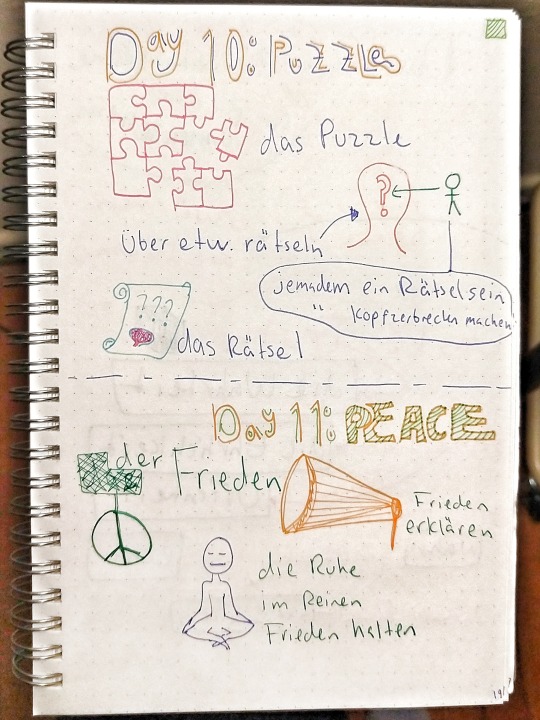 Day 10: Puzzle
das Puzzle
?
über etw. rätseln
jemadem ein Rätsel sein
" Kopfzerbrechen machen
???
das Rätsel
Day 11: PEACE
der Frieden
Frieden
erklären
die Ruhe
im Reinen
Frieden halten